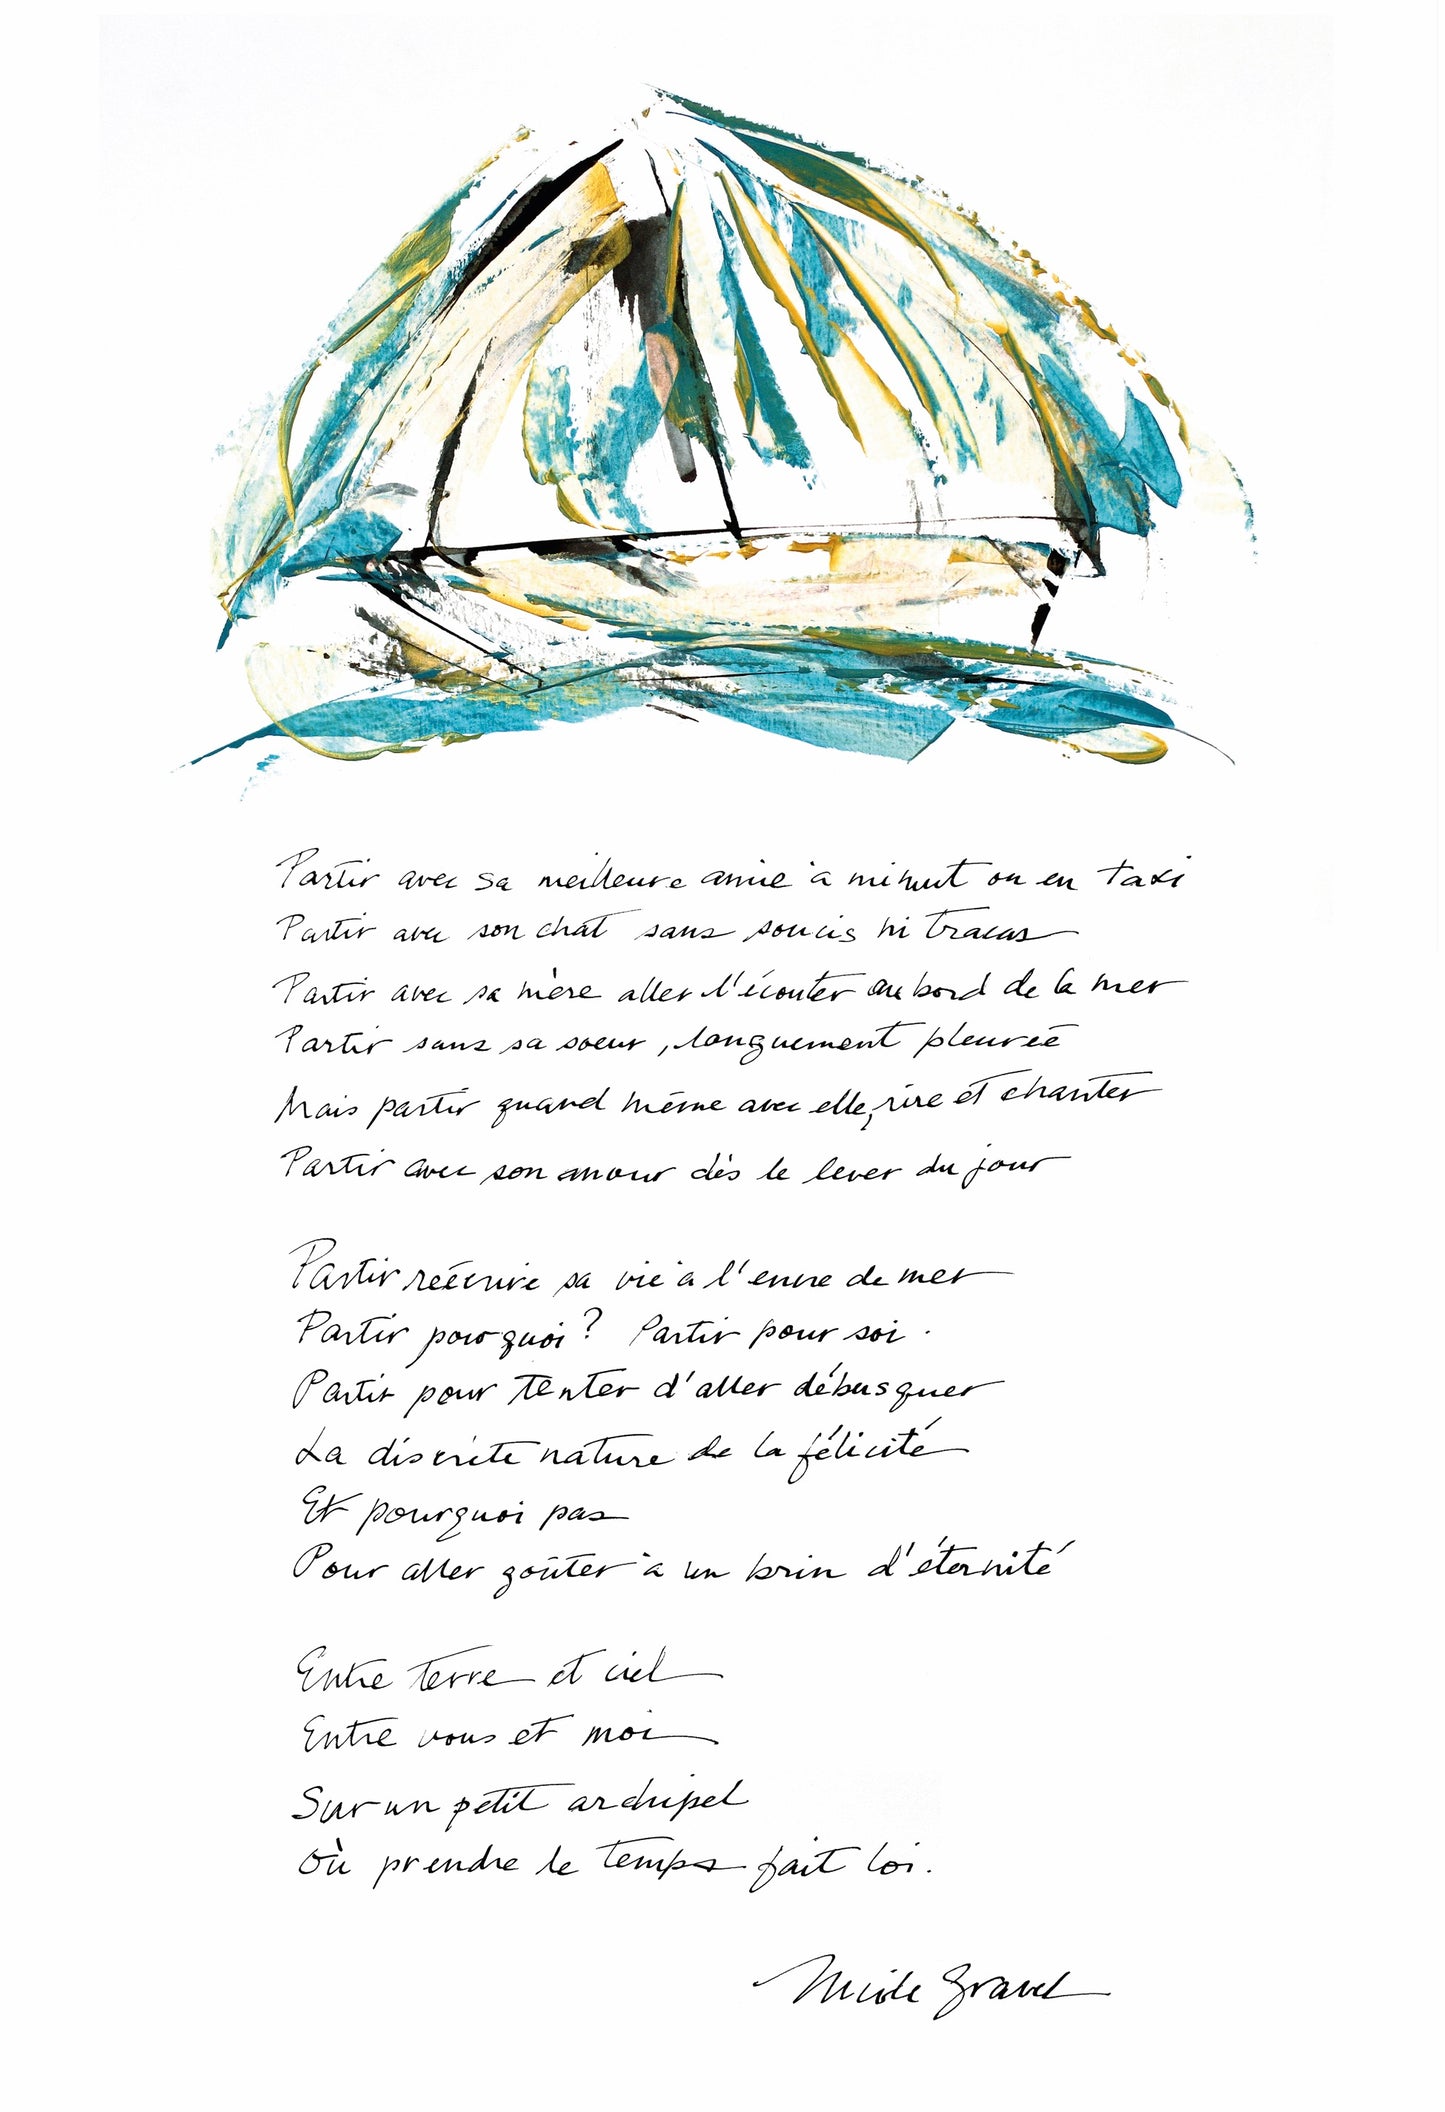 Partir avec sa meilleure amie à minuit ou en taxi
Partir avec son chat sans soucis ni tracas
Partir avec sa mère aller l'écouter au bord de la mer
Partir sans sa soeur, longuement pleurée
Mais partir quand même avec elle, rire et chanter
Partir avec son amour dès le lever du jour
Partir réécrire sa vie à l'encre de mer
Partir pourquoi? Partir pour soi.
Partir pour tenter d'aller débusquer
La discrète nature de la félicité
Et pourquoi pas
Pour aller goûter à un brin d'éternité
Entre terre et ciel
Entre vous et moi
Sur un petit archipel
Où prendre le temps fait loi.
Nicole Gravel